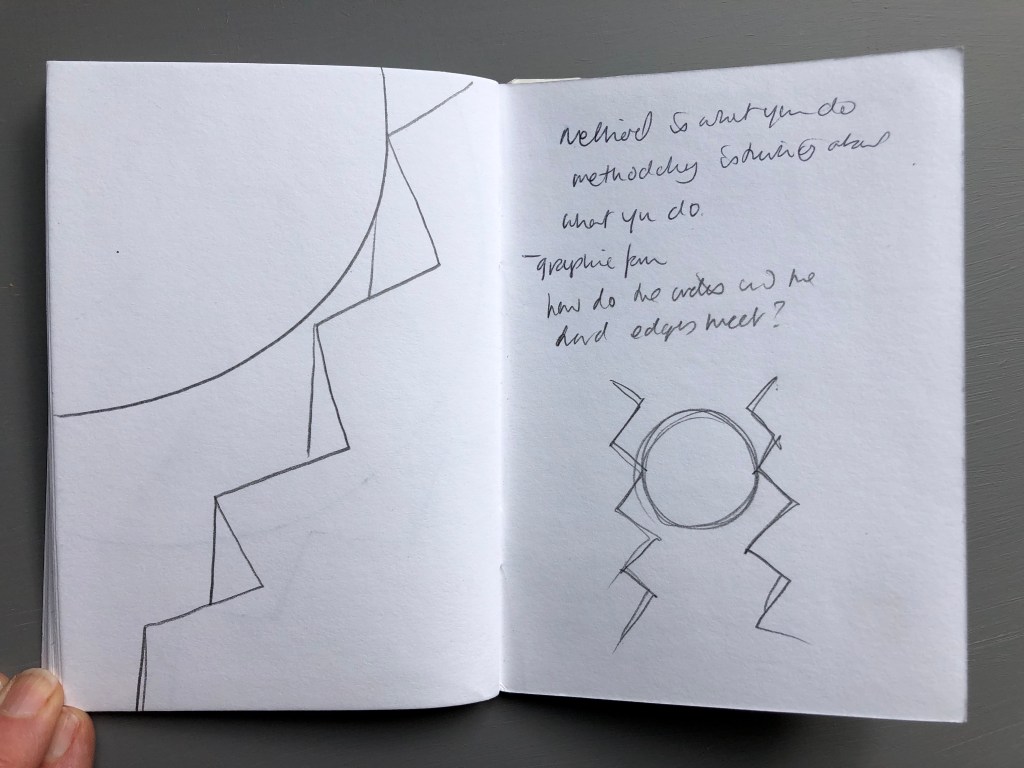 method is what you do
methodology is thinking about
what you do.
- graphic form
how do the circles and the
hard edges meet?